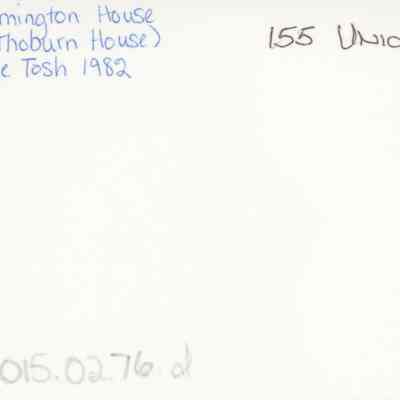 mington House
Thoburn House)
e Tosh 1982
155 Unio
015.0276.d